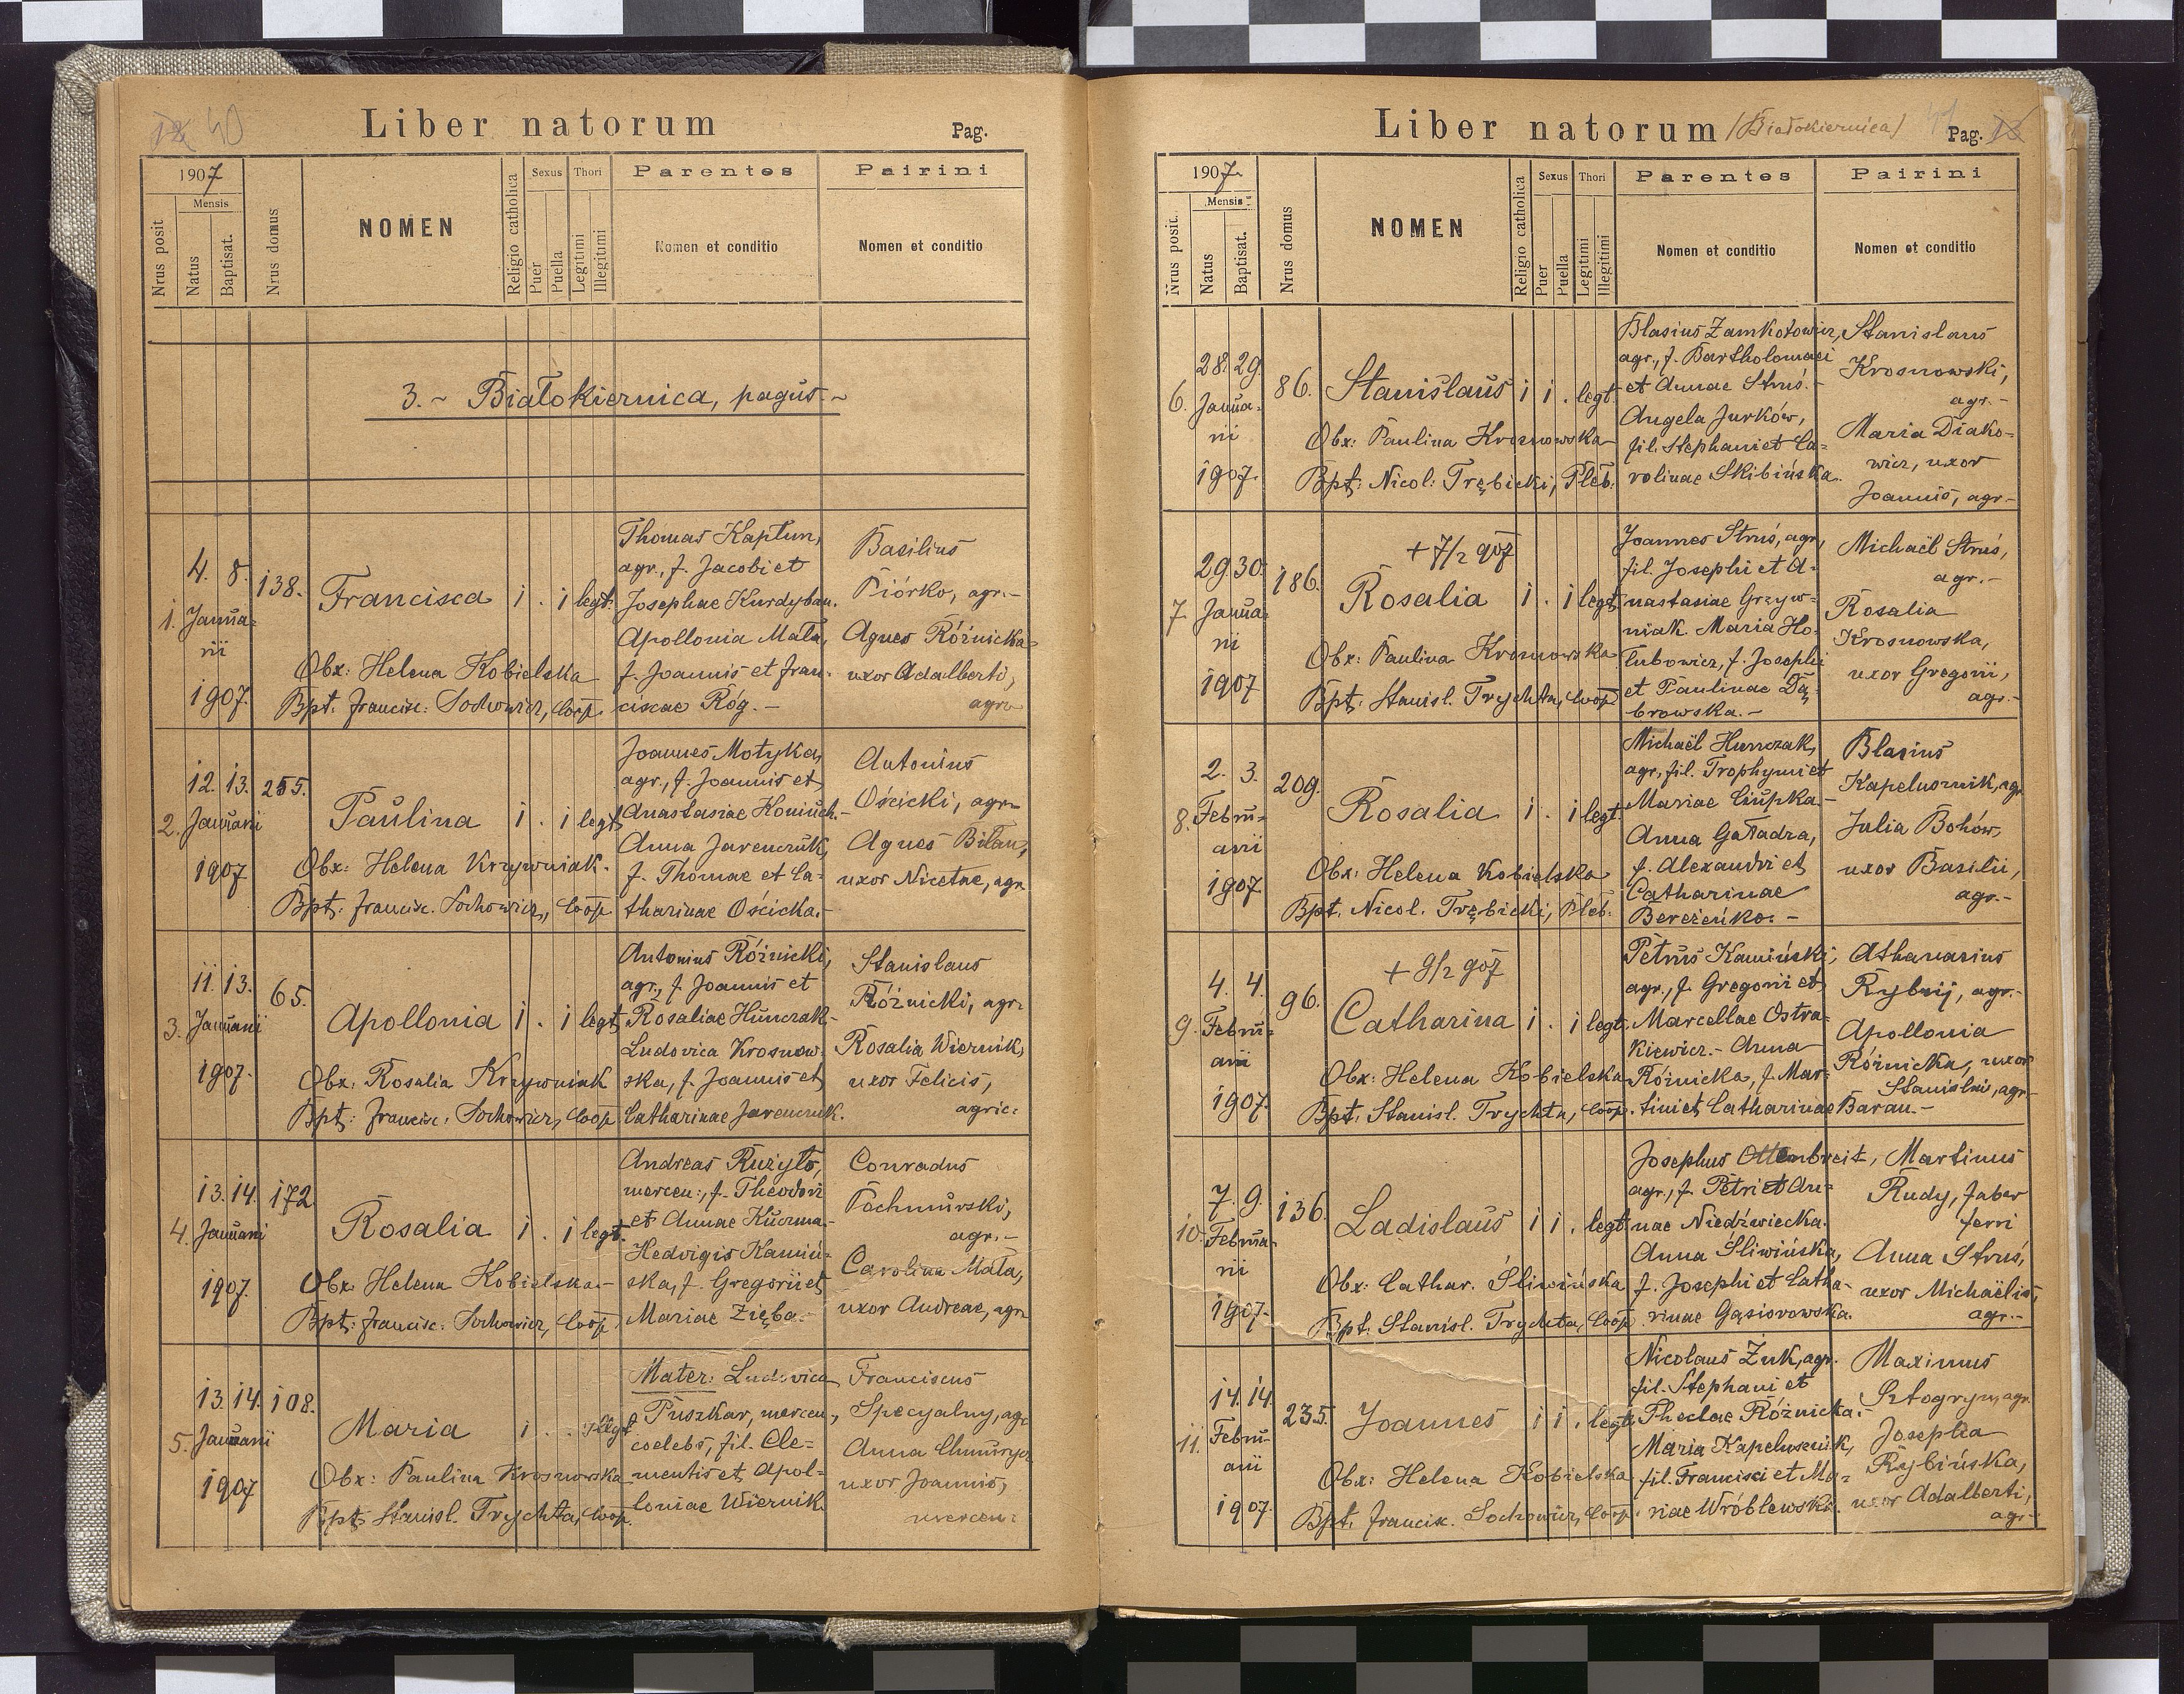 40
Liber natorum
Pag.
1907
Mensis
Nrus posit
Natus
Baptisat.
Nrus domus
NOMEN
Religio catholica
Sexus
Puer
Puella
Thori
Legitumi
Illegitumi
Parentes
Nomen et conditio
Pairini
Nomen et conditio
3.~ Białokiernica, pagus.~
1.
4. 8.
Janua-
rii
1907.
138.
Francisca
i . i legt.
Obx: Helena Kobielska
Bpt. Francisc: Sochowicz, Coop.
Thomas Kaptun,
agr., f. Jacobi et
Josephae Kurdyban.
Apollonia Mała,
f. Joannis et Fran-
ciscae Róg. -
Basilius
Piórko, agr.-
Agnes Różnicka-
uxor Adalberti,
agr.-
2.
12. 13.
Januarii
1907
255.
Paulina
i . i legt.
Obx: Helena Krzywniak.
Bpt: Francisc. Sochowicz, Coop.
Joannes Motyka,
agr., f. Joannis et
Anastasiae Honiuch.-
Anna Jarenczuk,
f. Thomae et Ca-
tharinae Ościcka.-
Antonius
Ościcki, agr.-
Agnes Bilan,
uxor Nicetae, agr.
3.
11. 13.
Januarii
1907.
65.
Apollonia
i . i legt.
Obx: Rosalia Krzywniak
Bpt: Francisc: Sochowicz, Coop.
Antonius Różnicki,
agr., f. Joannis et
Rosaliae Hunczak-
Ludovica Krosnow-
ska, f. Joannis et
Catharinae Jarenczuk.
Stanislaus
Różnicki, agr.
Rosalia Wiernik,
uxor Felicis,
agric:
4.
13. 14.
Januarii
1907.
172
Rosalia
i . i legt.
Obx. Helena Kobielska.-
Bpt: Francisc: Sochowicz, Coop.
Andreas Rużyło,
mercen:, f. Theodori
et Annae Kuzma.-
Hedvigis Kamiń-
ska, f. Gregorii et
Mariae Zięba.-
Conradus
Pochmurski,
agr.-
Carolina Mała,
uxor Andreae, agr.
5.
13. 14.
Januarii
1907
108.
Maria
i . . illegt.
Obx: Paulina Krosnowska
Bpt. Stanisl. Trychta, Coop.
Mater: Ludovica
Puszkar, mercen.,
coelebs, fil. Cle-
mentis et Apol-
loniae Wiernik.
Franciscus
Specyalny, agr.
Anna
uxor Joannis,
mercen:
Liber natorum /Białokiernica/
Pag.
1907.
Mensis
Nrus posit.
Natus
Baptisat.
Nrus domus
NOMEN
Religio catholica
Sexus
Puer
Puella
Thori
Legitumi
Illegitimi
Parentes
Nomen et conditio
Pairini
Nomen et conditio
6.
28. 29.
Janua-
rii
1907.
86.
Stanislaus
i i . legt.
Obx: Paulina Krosnowska
Bpt: Nicol: Trębicki, Pleb.
Blasius Zamkotowicz,
agr., f. Bartholomaei
et Annae Struś.-
Angela Jurków,
fil. Stephani et Ca-
rolinae Skibińska.
Stanislaus
Krosnowski,
agr.-
Maria Diako-
wicz, uxor
Joannis, agr.-
7.
29. 30.
Janua-
rii
1907
186.
+ 7/2 907
Rosalia
i . i legt.
Obx: Paulina Krosnowska
Bpt: Stanisl. Trychta, Coop.
Joannes Struś, agr.,
fil. Josephi et A-
nastasiae Grzyw-
niak. Maria Ho-
łubowicz, f. Josephi
et Paulinae Dą-
browska.-
Michaël Struś,
agr.-
Rosalia
Krosnowska,
uxor Gregorii,
agr.-
8.
2. 3.
Febru-
arii
1907
209.
Rosalia
i . i legt.
Obx: Helena Kobielska
Bpt. Nicol. Trębicki, Pleb.
Michaël Hunczak,
agr., fil. Trophymi et
Mariae Ciupka.-
Anna Gaładza,
f. Alexandri et
Catharinae
Bereżeńko.-
Blasius
Kapelusznik, agr.
Julia Bohów,
uxor Basilii,
agr.-
9.
4. 4.
Febru-
arii
1907.
96.
+ 9/2 907
Catharina
i . i legt.
Obx: Helena Kobielska
Bpt. Stanisl. Trychta, Coop.
Petrus Kamiński,
agr., f. Gregorii et
Marcellae Ostra-
kiewicz.- Anna
Różnicka, f. Mar-
tini et Catharinae Baran.-
Athanasius
Rybnij, agr.-
Apollonia
Różnicka, uxor
Stanislai, agr.-
10.
7. 9.
Februa-
rii
1907.
136.
Ladislaus
i i . legt.
Obx: Cathar. Śliwińska
Bpt. Stanisl. Trychta, Coop.
Josephus Ottenbreit,
agr., f. Petri et An-
nae Niedźwiecka.
Anna Śliwińska,
f. Josephi et Catha-
rinae Gąsiorowska.
Martinus
Rudy, faber
ferri
Anna Struś,
uxor Michaëlis,
agr.-
11.
14. 14.
Febru-
arii
1907.
235.
Joannes
i i . legt.
Obx: Helena Kobielska
Bpt. Francisc. Sochowicz, Coop.
Nicolaus Żuk, agr.
fil. Stephani et
Theclae Różnicka.-
Maria Kapelusznik,
fil. Francisci et Ma-
riae Wróblewska.
Maximus
Sztogryn, agr.
Josepha
Rybińska,
uxor Adalberti,
agr.-